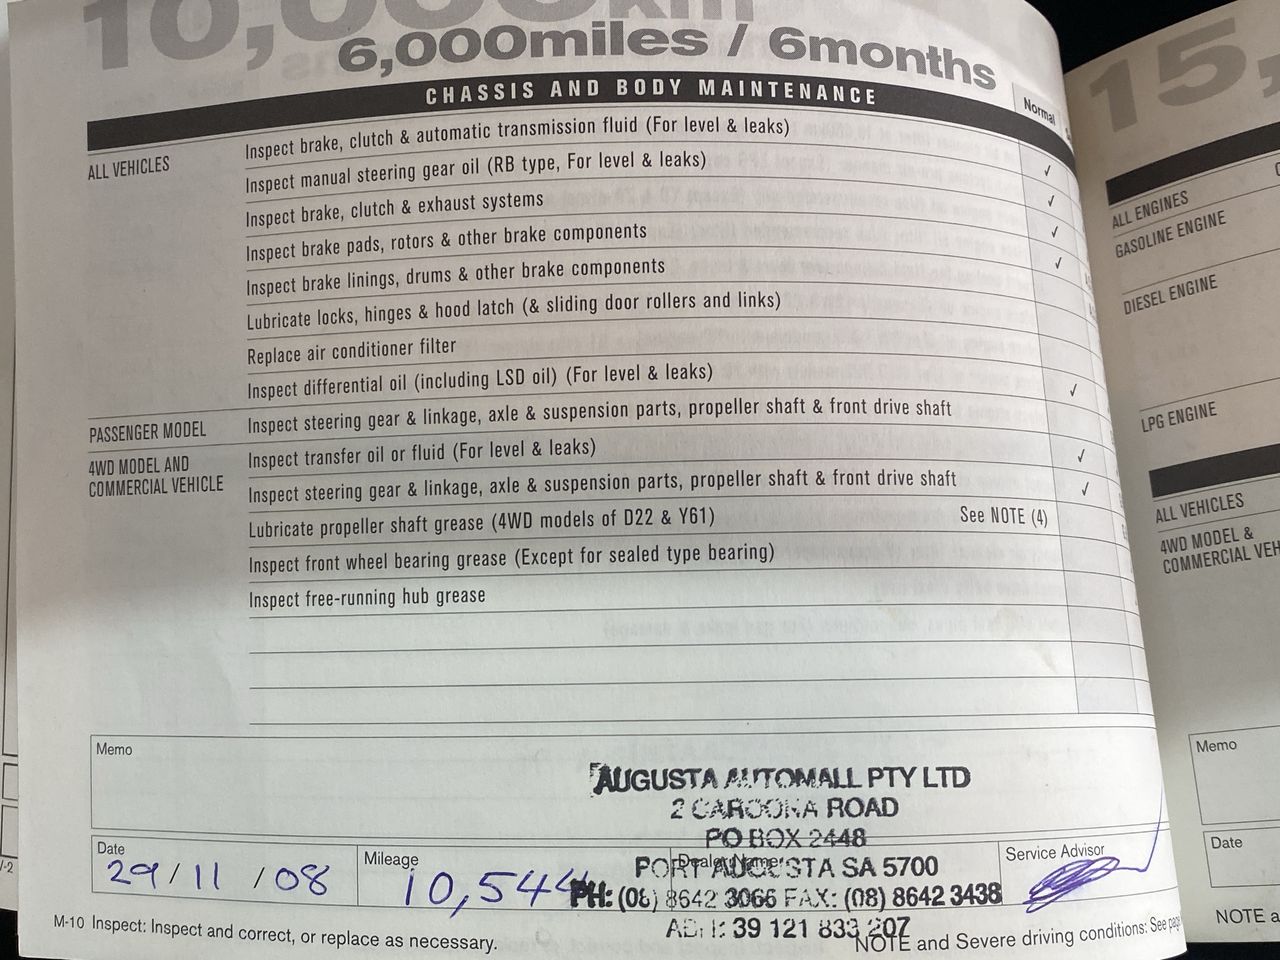 10,000km
6,000miles / 6months
CHASSIS AND BODY MAINTENANCE
Normal
ALL VEHICLES
Inspect brake, clutch & automatic transmission fluid (For level & leaks) ✓
Inspect manual steering gear oil (RB type, For level & leaks) ✓
Inspect brake, clutch & exhaust systems ✓
Inspect brake pads, rotors & other brake components ✓
Inspect brake linings, drums & other brake components
Lubricate locks, hinges & hood latch (& sliding door rollers and links)
Replace air conditioner filter
Inspect differential oil (including LSD oil) (For level & leaks) ✓
PASSENGER MODEL
Inspect steering gear & linkage, axle & suspension parts, propeller shaft & front drive shaft
4WD MODEL AND
COMMERCIAL VEHICLE
Inspect transfer oil or fluid (For level & leaks) ✓
Inspect steering gear & linkage, axle & suspension parts, propeller shaft & front drive shaft ✓
Lubricate propeller shaft grease (4WD models of D22 & Y61) See NOTE (4)
Inspect front wheel bearing grease (Except for sealed type bearing)
Inspect free-running hub grease
Memo
AUGUSTA AUTOMALL PTY LTD
2 CAROONA ROAD
PO BOX 2448
PORT AUGUSTA SA 5700
PH: (08) 8642 3066 FAX: (08) 8642 3438
ABN: 39 121 833 207
Date
29/11/08
Mileage
10,544
Dealer Name
Service Advisor
M-10 Inspect: Inspect and correct, or replace as necessary.
NOTE and Severe driving conditions: See
15,
ALL ENGINES
GASOLINE ENGINE
DIESEL ENGINE
LPG ENGINE
ALL VEHICLES
4WD MODEL &
COMMERCIAL VEH
Memo
Date
NOTE a